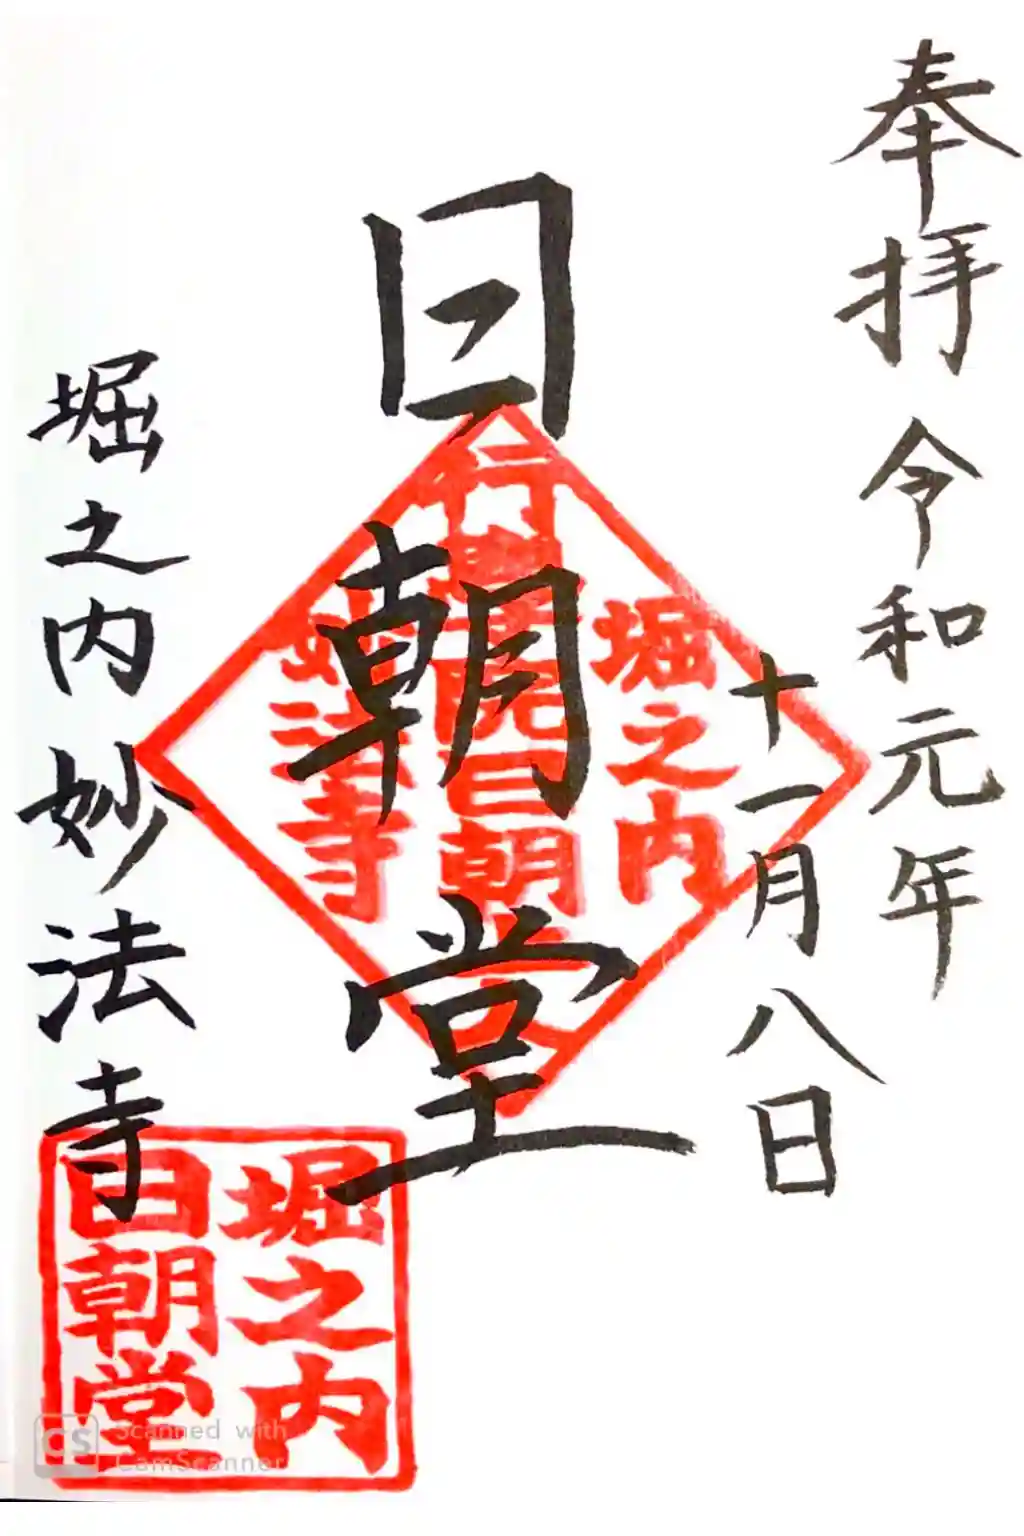 奉拝 令和元年
十一月八日
日朝堂
堀之内妙法寺
堀之内
日朝
妙法寺
堀之内
日朝堂
CS Scanned with
CamScanner